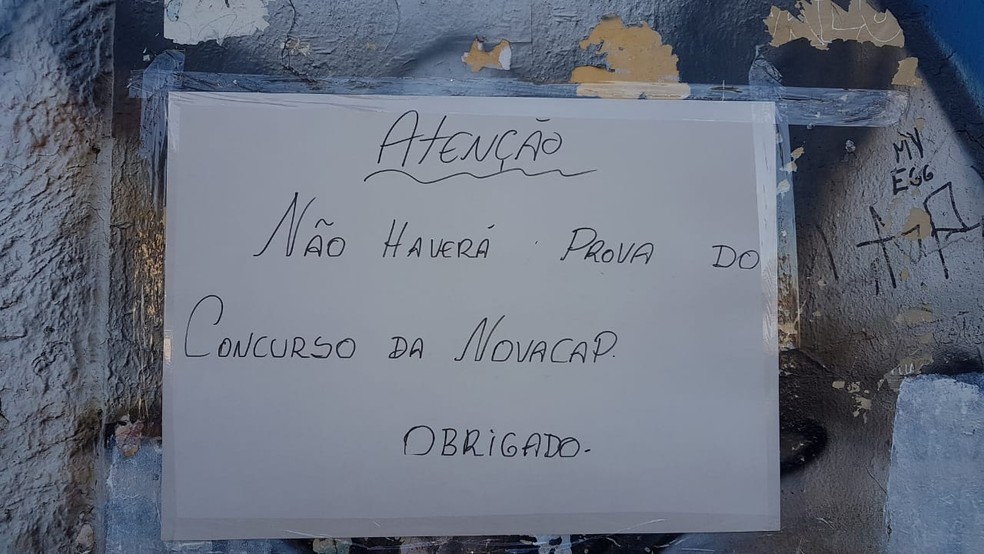 ATENÇÃO
NÃO HAVERÁ PROVA DO
CONCURSO DA NOVACAP.
OBRIGADO.
MV
EGG